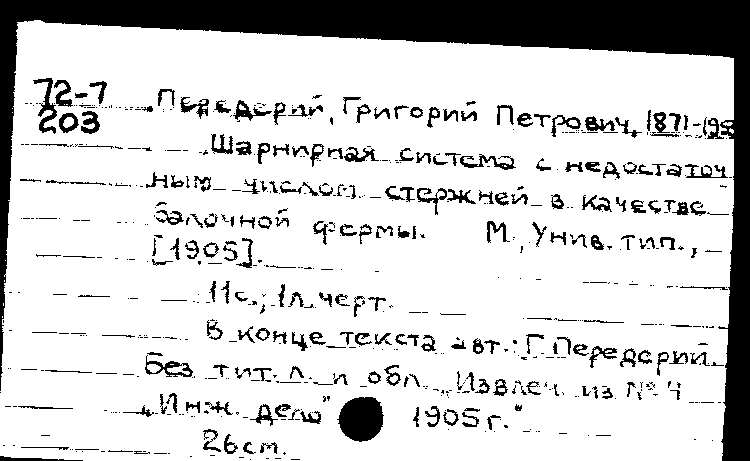 72-7
203
Передерий, Григорий Петрович, 1871-195
Шарнирная система с недостаточ
ным числом стержней в качестве
балочной фермы. М., Унив. тип.,
[1905].
11с.; 1л. черт.
В конце текста авт.: Г. Передерий.
Без тит. л. и обл. „Извлеч. из № 4
„Инж. дело" 1905 г."
26 см.